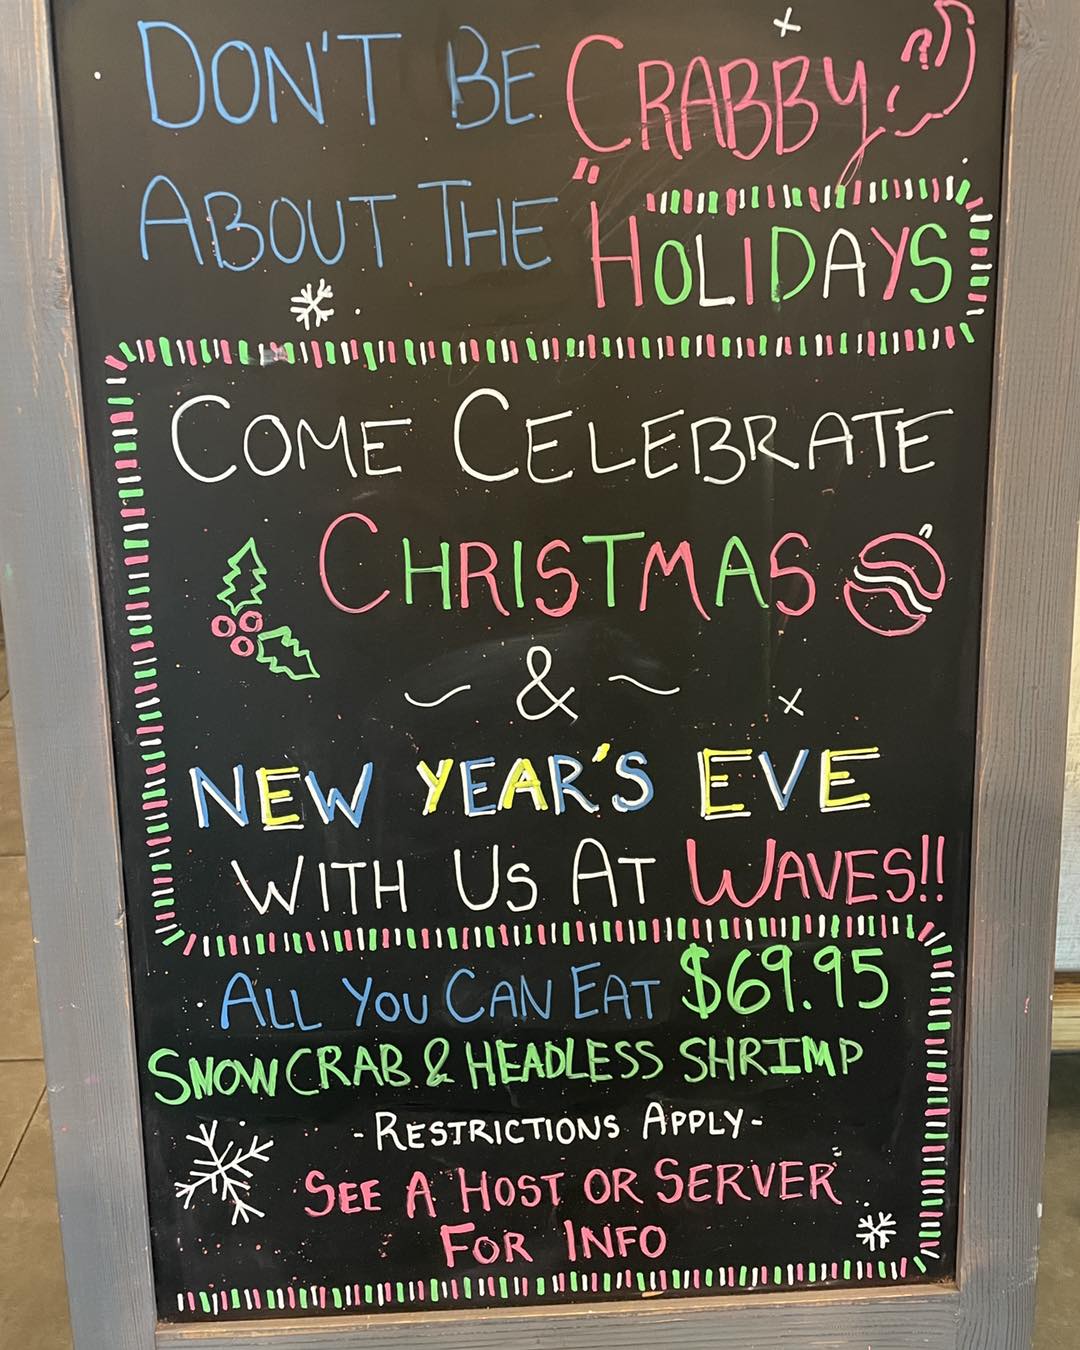 DON'T BE CRABBY
ABOUT THE HOLIDAYS
COME CELEBRATE
CHRISTMAS
~ & ~
NEW YEAR'S EVE
WITH US AT WAVES!!
ALL YOU CAN EAT $69.95
SNOW CRAB & HEADLESS SHRIMP
-RESTRICTIONS APPLY-
SEE A HOST OR SERVER
FOR INFO